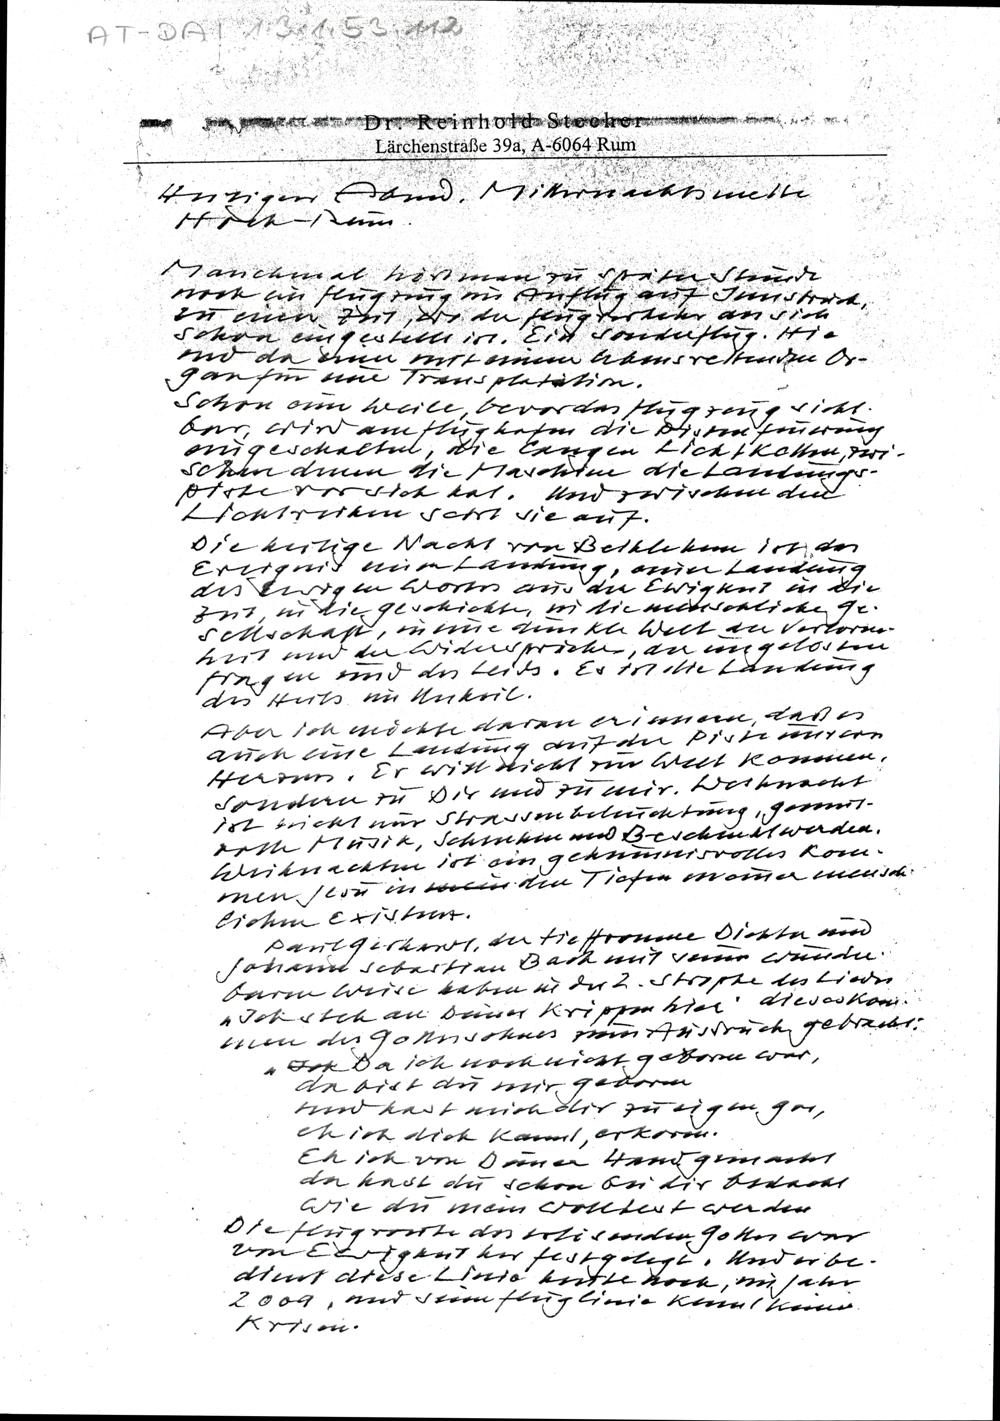 AT-DAI 1.3.1.53.112
Dr. Reinhold Stecher
Lärchenstraße 39a, A-6064 Rum
Heiliger Abend. Mitternachtsmette
Hoch-Rum.
Manchmal hört man zu später Stunde
noch ein Flugzeug im Anflug auf Innsbruck,
zu einer Zeit, wo der Flugverkehr an sich
schon eingestellt ist. Ein Sonderflug. Hie
und da einer mit einem lebensrettenden Or-
gan für eine Transplatation.
Schon eine Weile, bevor das Flugzeug sicht-
bar, wird am Flughafen die Pistenfeuerung
eingeschaltet, die langen Lichtketten, zwi-
schen denen die Maschine die Landungs-
piste vor sich hat. Und zwischen den
Lichtreihen setzt sie auf.
Die heilige Nacht von Bethlehem ist das
Ereignis einer Landung, einer Landung
des Ewigen Wortes aus der Ewigkeit in die
Zeit, in die Geschichte, in die menschliche Ge-
sellschaft, in eine dunkle Welt der Verloren-
heit und der Widersprüche, der ungelösten
Fragen und des Leids. Es ist die Landung
des Heils im Unheil.
Aber ich möchte daran erinnern, daß es
auch eine Landung auf der Piste unseres
Herzens. Er will nicht zur Welt kommen,
sondern zu Dir und zu mir. Weihnacht
ist nicht nur Strassenbeleuchtung, gemüt-
volle Musik, Schenken und Beschenktwerden.
Weihnachten ist ein geheimnisvolles Kom-
men Jesu in den Tiefen meiner mensch-
lichen Existenz.
Paul Gerhardt, der tieffromme Dichter und
Johann Sebastian Bach mit seiner wunder-
baren Weise haben in der 2. Strophe des Liedes
"Ich steh an Deiner Krippen hier" dieses Kom-
men des Gottessohnes zum Ausdruck gebracht:
"Da ich noch nicht geboren war,
da bist du mir geboren
und hast mich dir zu eigen gar,
eh ich dich kannt, erkoren.
Eh ich von Deiner Hand gemacht
da hast du schon bei dir bedacht
wie du mein wolltest werden
Die Flugroute des erlösenden Gottes war
von Ewigkeit her festgelegt. Und er be-
dient diese Linie heute noch, im Jahr
2009, und seine Fluglinie kennt keine
Krisen.